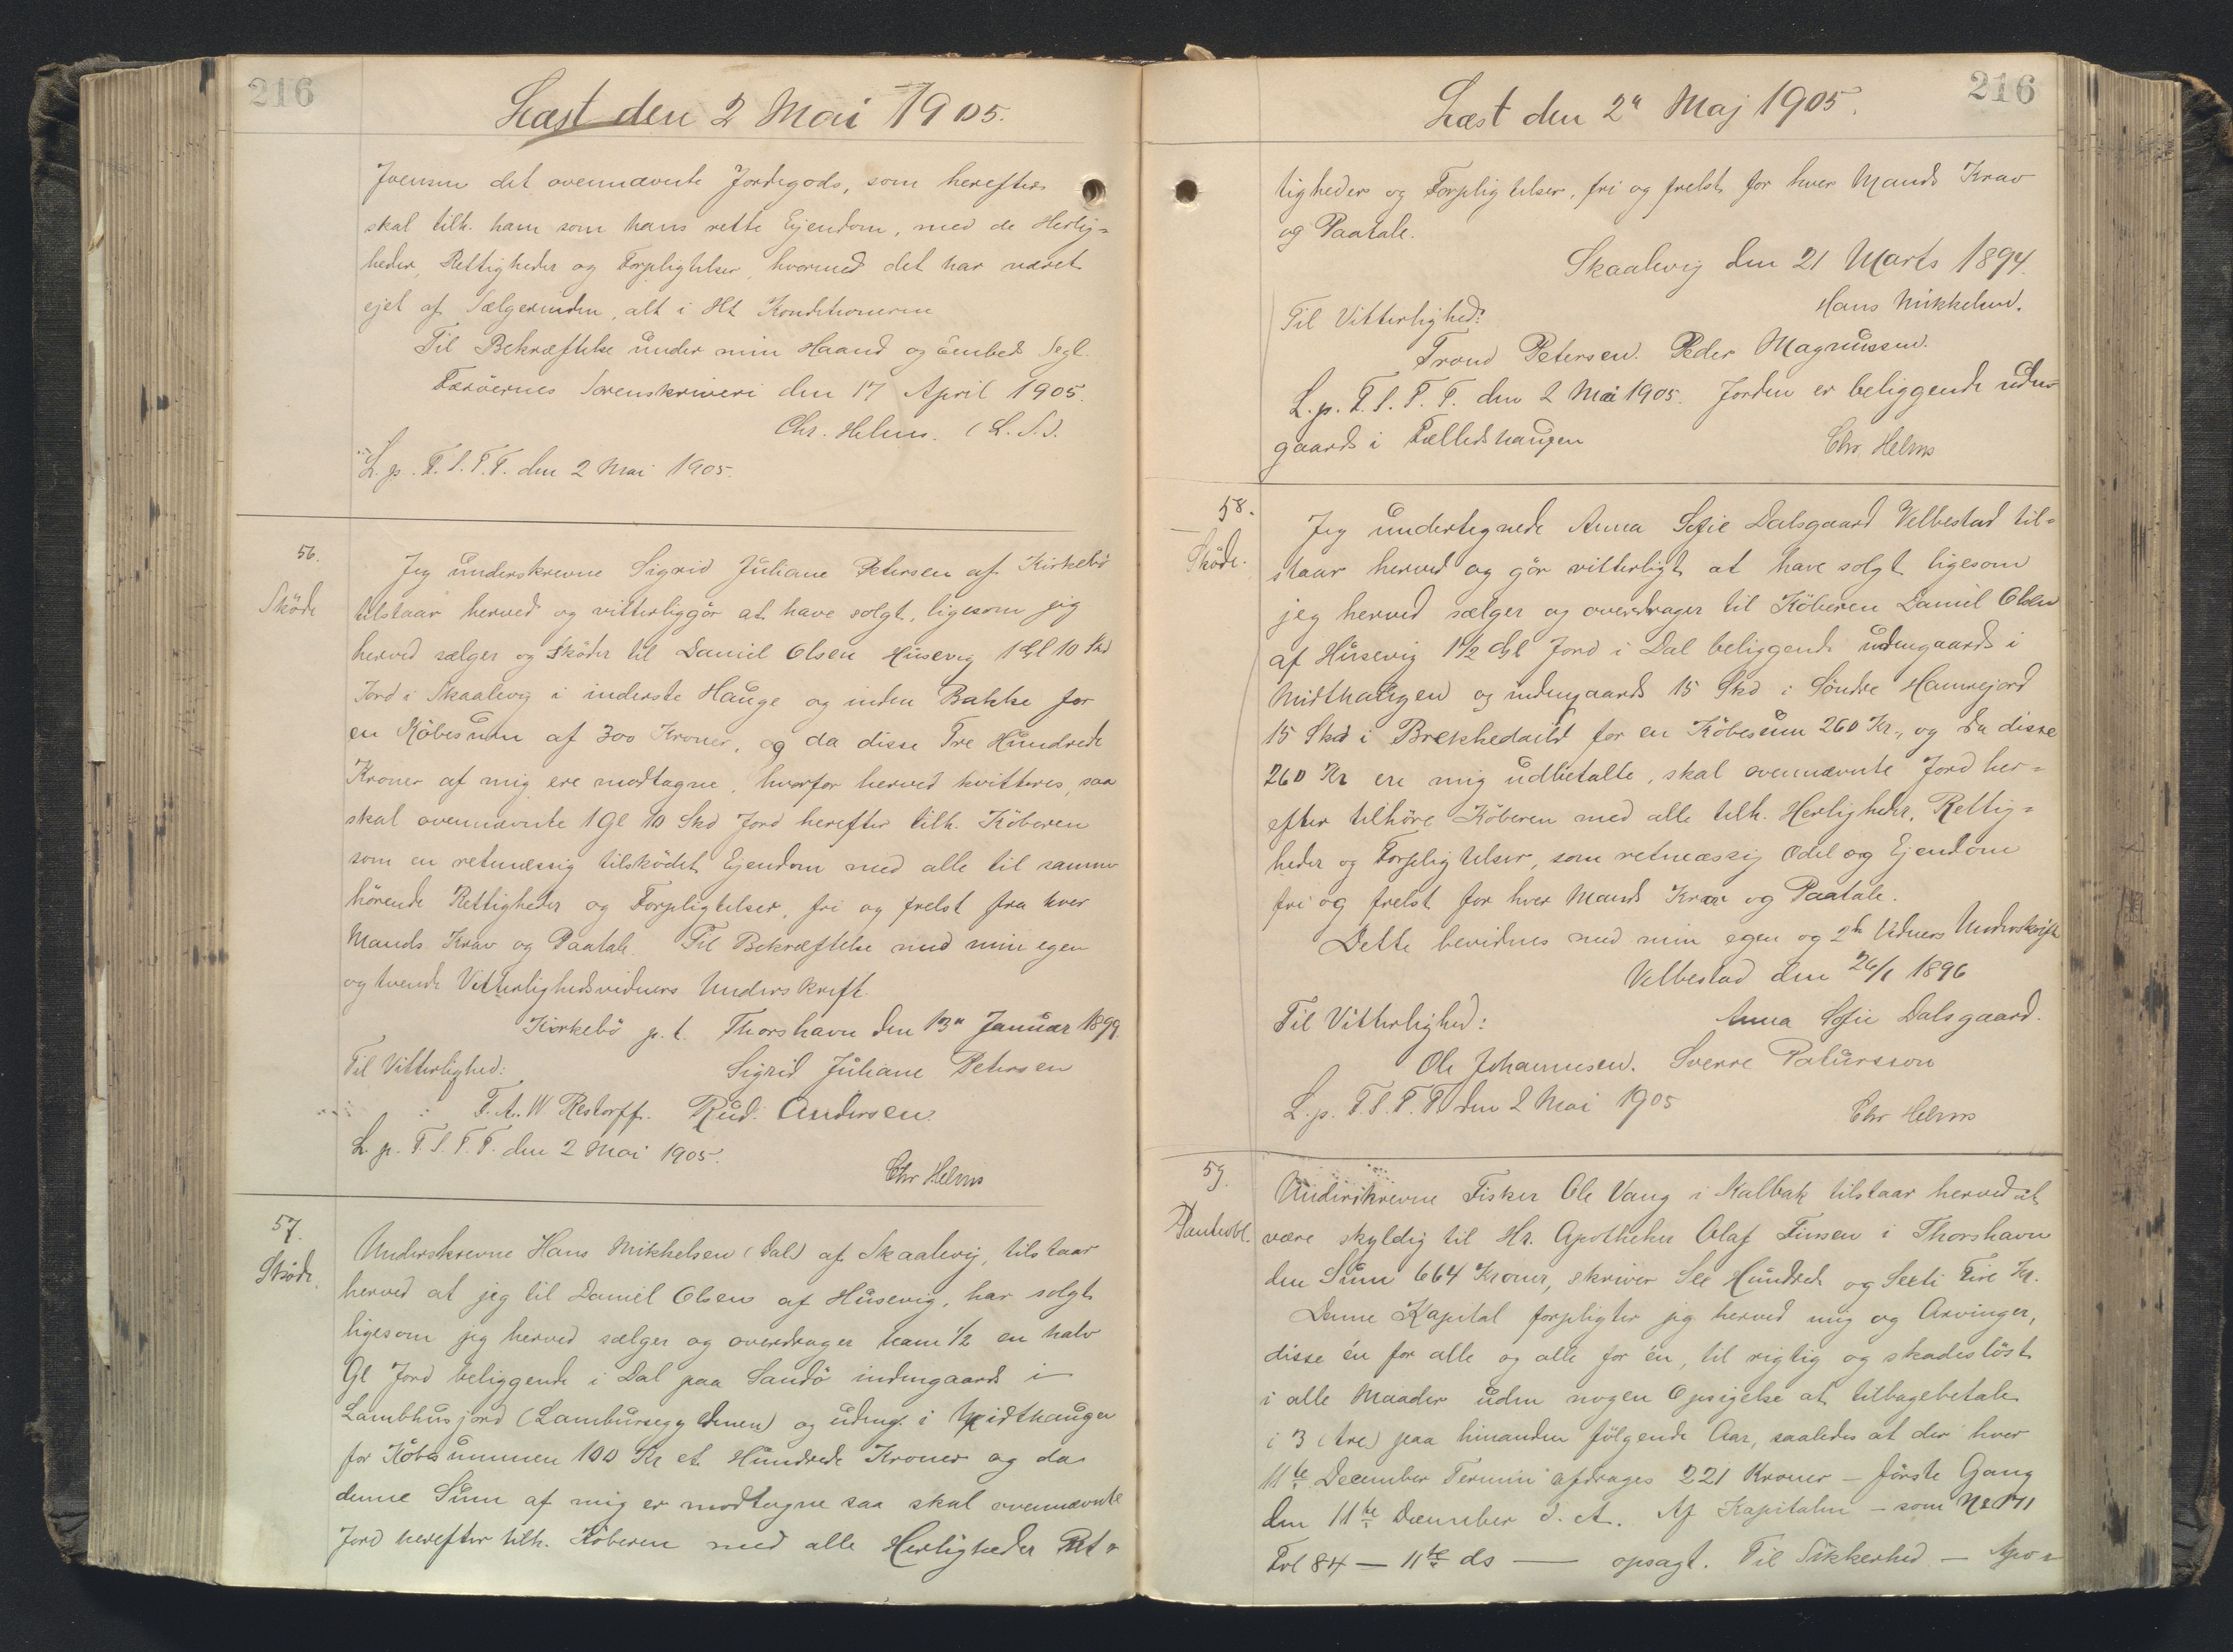 216
Læst den 2 Mai 1905.
Joensen det ovennævnte Jordegods, som herefter
skal tilh. ham som hans rette Ejendom, med de Herlig=
heder, Rettigheder og Forpligtelser, hvormed det har været
ejet af Sælgerinden, alt i Ht Konditionerne
Til Bekræftelse under min Haand og Embeds Segl.
Færöernes Sorenskriveri den 17 April 1905.
Chr. Helms. (L.S.).
L. p. F. S. T. T. den 2 Mai 1905.
56.
Sköde
Jeg underskrevne Sigrid Juliane Petersen af Kirkebö
tilstaar herved og vitterliggör at have solgt, ligesom jeg
herved sælger og sköder til Daniel Olsen Husevig 1 Gl 10 Skd
Jord i Skaalevig i inderste Hauge og inden Bakke for
en Köbesum af 300 Kroner, og da disse Tre Hundrede
Kroner af mig ere modtagne, hvorfor herved kvitteres, saa
skal ovennævnte 1 Gl 10 Skd Jord herefter tilh. Köberen
som en retmæssig tilsködet Ejendom med alle til samme
hörende Rettigheder og Forpligtelser, fri og frelst fra hver
Mands Krav og Paatale. Til Bekræftelse med min egen
og tvende Vitterlighedsvidners Underskrift.
Kirkebö p. t. Thorshavn den 13n Januar 1899.
Til Vitterlighed: Sigrid Juliane Petersen
F. A. W. Restorff. Rud. Andersen.
L. p. F. S. T. T. den 2 Mai 1905.
Chr Helms
57.
Sköde.
Underskrevne Hans Mikkelsen (Dal) af Skaalevig, tilstaar
herved at jeg til Daniel Olsen af Husevig, har solgt
ligesom jeg herved sælger og overdrager ham 1/2 en halv
Gl Jord beliggende i Dal paa Sandö indengaards i
Lambhusjord (Lambursegg ) og udeng. i Midthaugen
for Köbesummen 100 Kr et Hundrede Kroner og da
denne Sum af mig er modtagne saa skal ovennævnte
Jord herefter tilh. Köberen med alle Herligheder Ret=
216
Læst den 2n Maj 1905.
tigheder og Forpligtelser, fri og frelst for hver Mands Krav
og Paatale.
Skaalevig den 21 Marts 1894.
Hans Mikkelsen.
Til Vitterlighed:
Trond Petersen. Peder Magnussen.
L. p. F. S. T. T. den 2 Mai 1905. Jorden er beliggende uden
gaards i Fælledshaugen
Chr. Helms
58.
Sköde.
Jeg undertegnede Anna Sofie Dalsgaard Velbestad til=
staar herved og gör vitterligt at have solgt ligesom
jeg herved sælger og overdrager til Köberen Daniel Olsen
af Husevig 1 1/2 Gl Jord i Dal beliggende udengaards i
Midthaugen og indengaards 15 Skd i Söndre Hamrejord
15 Skd i Brekkedeild for en Köbesum 260 Kr., og da disse
260 Kr ere mig udbetalte, skal ovennævnte Jord her=
efter tilhöre Köberen med alle tilh. Herligheder, Rettig=
heder og Forpligtelser, som retmæssig Odel og Ejendom
fri og frelst for hver Mands Krav og Paatale.
Dette bevidnes med min egen og 2de Vidners Underskrift
Velbestad den 26/1 1896
Til Vitterlighed: Anna Sofie Dalsgaard.
Ole Johannesen. Sverre Patursson
L. p. F. S. T. T. den 2 Mai 1905
Chr Helms
59.
Panteobl.
Underskrevne Fisker Ole Vang i Kalbak tilstaar herved at
være skyldig til Hr. Apotheker Olaf Finsen i Thorshavn
den Sum 664 Kroner, skriver Sex Hundrede og Sexti Fire Kr.
Denne Kapital forpligter jeg herved mig og Arvinger,
disse én for alle og alle for én, til rigtig og skadeslöst
i alle Maader uden nogen Opsigelse at tilbagebetale
i 3 (tre) paa hinanden fölgende Aar, saaledes at der hver
11te December Termin afdrages 221 Kroner — förste Gang
den 11te December d. A. Af Kapitalen — som No 171
Fol 84 — 11te ds — opsagt. Til Sikkerhed — Apo=